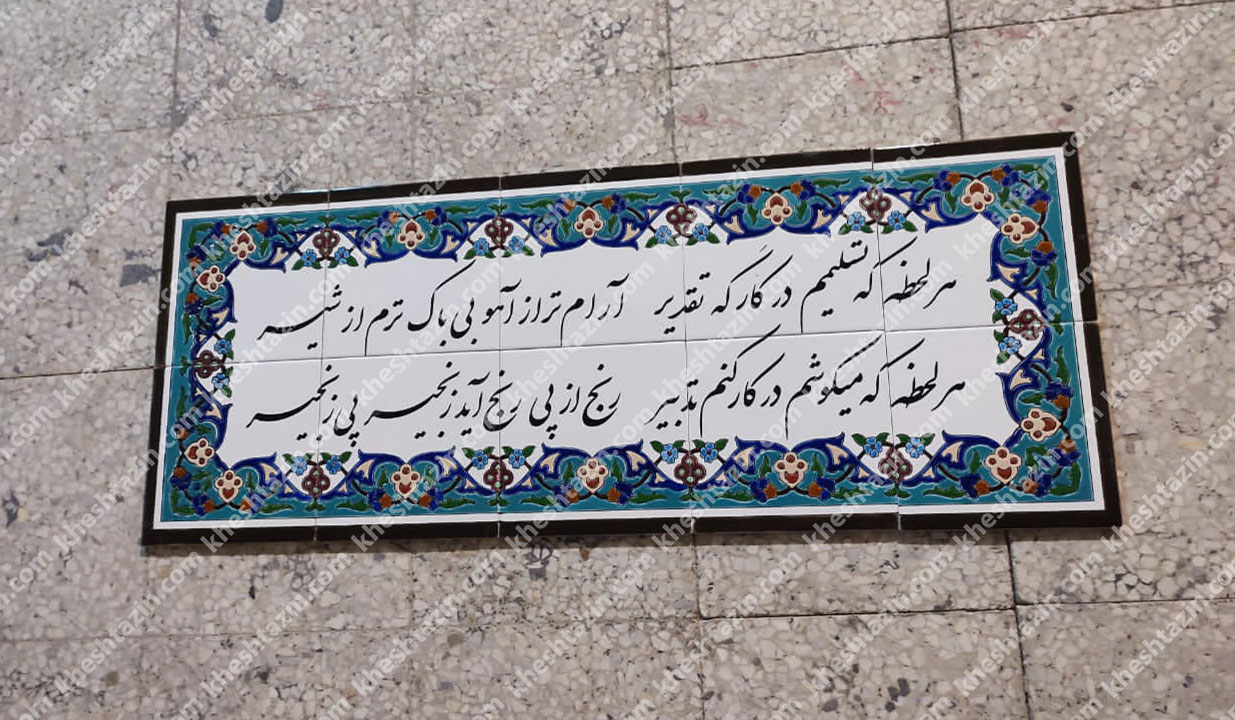 هر لحظه که تسلیمم در کارگه تقدیر آرام تر از آهو بی باک ترم از شیر
هر لحظه که میکوشم در کار کنم تدبیر رنج از پی رنج آید زنجیر پی زنجیر
kheshtazin.com